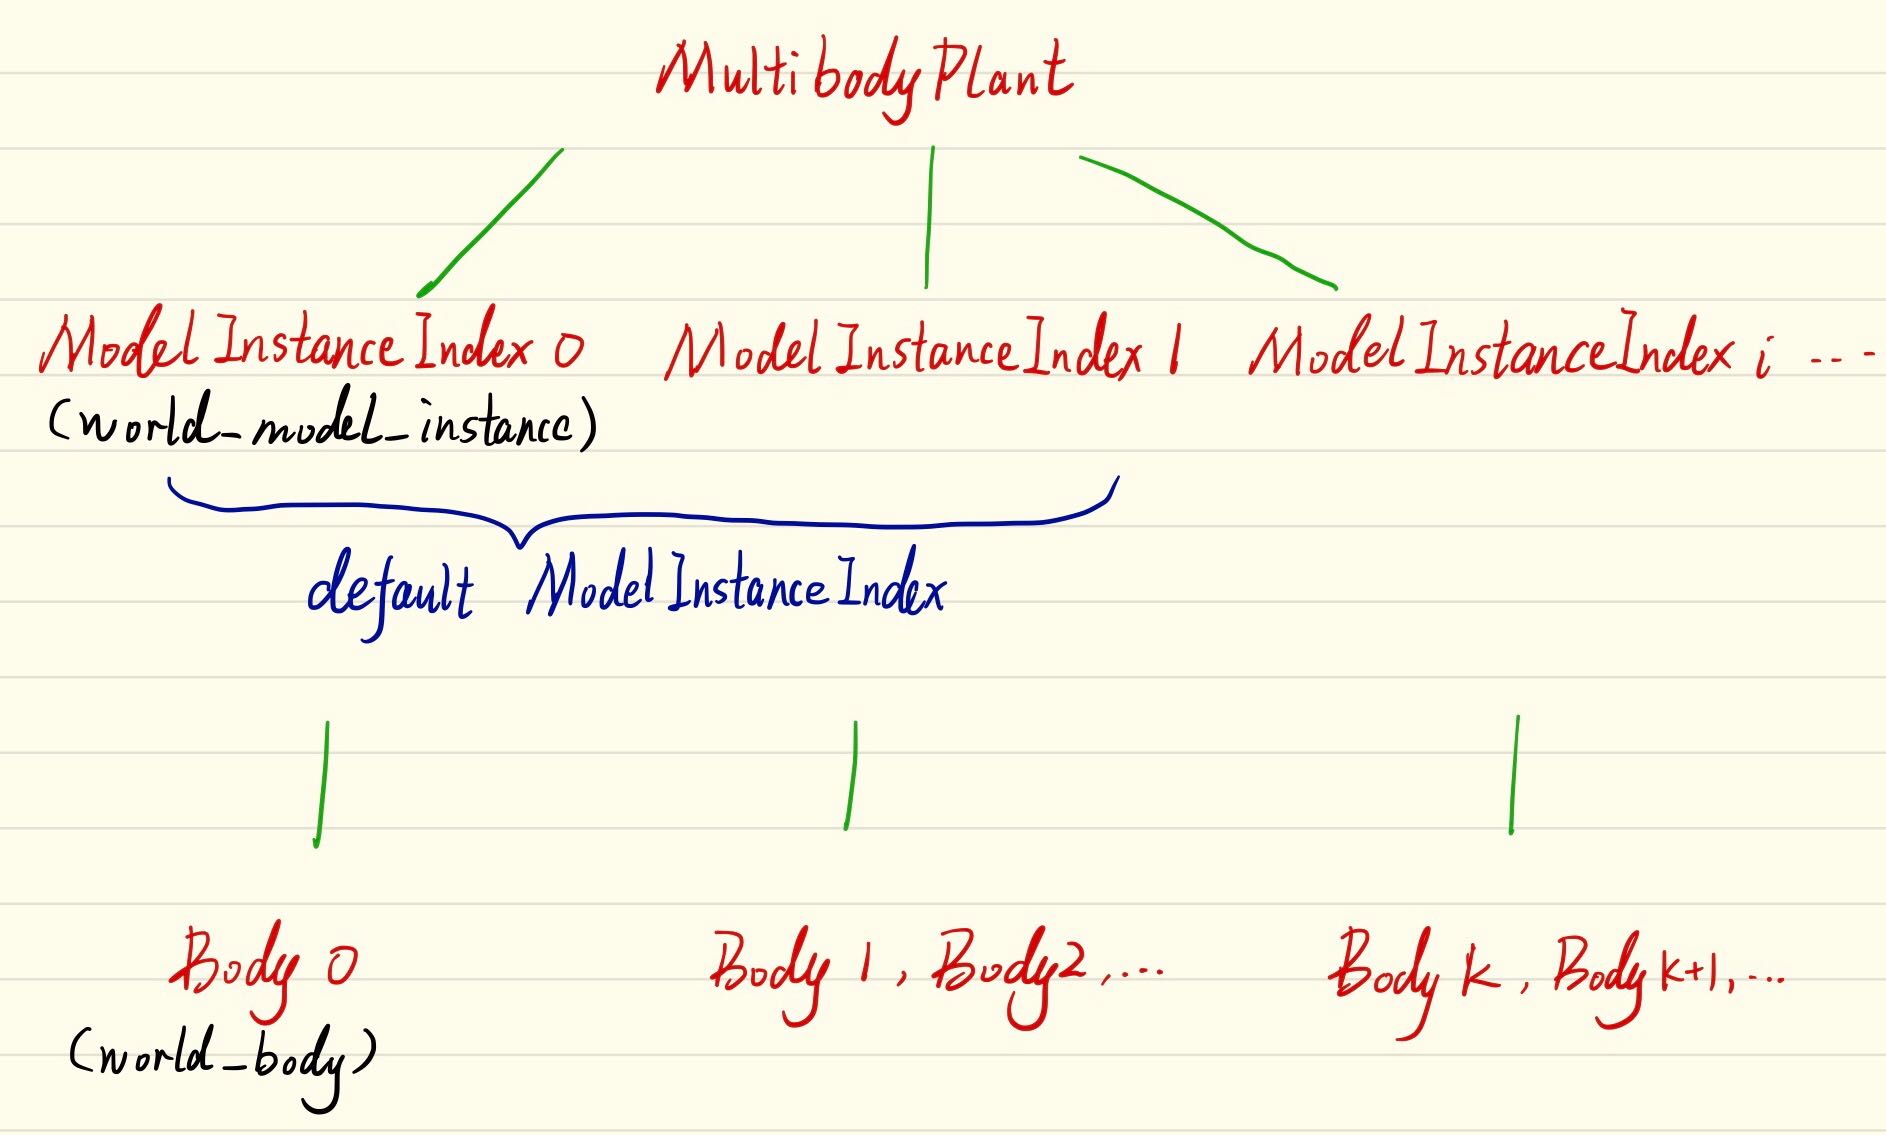 MultibodyPlant
ModelInstanceIndex 0 ModelInstanceIndex 1 ModelInstanceIndex i ---
(world_model_instance)
default ModelInstanceIndex
Body 0 Body 1, Body2,... Body k, Body k+1,...
(world_body)